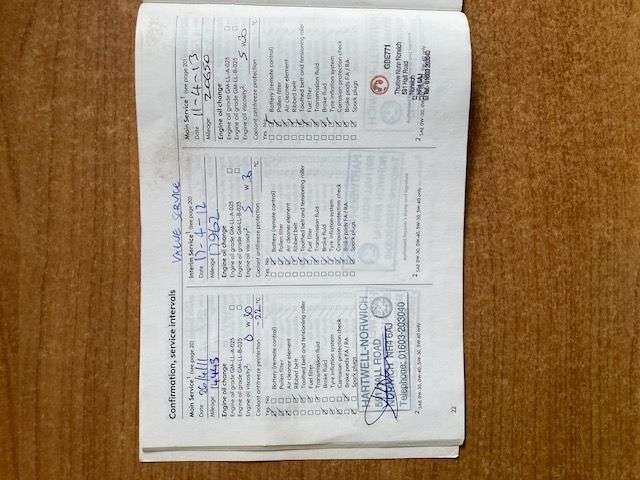 Confirmation, service intervals
Main Service¹ (see page 20)
Date 26/4/11
Mileage 14443
Engine oil change
Engine oil grade GM-LL-A-025
Engine oil grade GM-LL-B-025
Engine oil viscosity² 0 W 30
Coolant antifreeze protection -22 °C
Yes No
Battery (remote control)
Pollen filter
Air cleaner element
Ribbed belt
Toothed belt and tensioning roller
Fuel filter
Transmission fluid
Brake fluid
Tyre inflation system
Corrosion protection check
Brake pads FA / RA
Spark plugs
HARTWELL-NORWICH
HALL ROAD
NORWICH NR4 6AJ
Telephone: 01603-203040
² SAE 0W-30, 0W-40, 5W-30, 5W-40 only
22
VALUE SERVICE
Interim Service¹ (see page 20)
Date 17-4-12
Mileage 17962
Engine oil change
Engine oil grade GM-LL-A-025
Engine oil grade GM-LL-B-025
Engine oil viscosity² 5 W 30
Coolant antifreeze protection °C
Yes No
Battery (remote control)
Pollen filter
Air cleaner element
Ribbed belt
Toothed belt and tensioning roller
Fuel filter
Transmission fluid
Brake fluid
Tyre inflation system
Corrosion protection check
Brake pads FA / RA
Spark plugs
² SAE 0W-30, 0W-40, 5W-30, 5W-40 only
Main Service¹ (see page 20)
Date 11-4-13
Mileage 20650
Engine oil change
Engine oil grade GM-LL-A-025
Engine oil grade GM-LL-B-025
Engine oil viscosity² 5 W 30
Coolant antifreeze protection °C
Yes No
Battery (remote control)
Pollen filter
Air cleaner element
Ribbed belt
Toothed belt and tensioning roller
Fuel filter
Transmission fluid
Brake fluid
Tyre inflation system
Corrosion protection check
Brake pads FA / RA
Spark plugs
GDE771
Thurlow Nunn Norwich
Hall Road
Norwich
² SAE 0W-30,